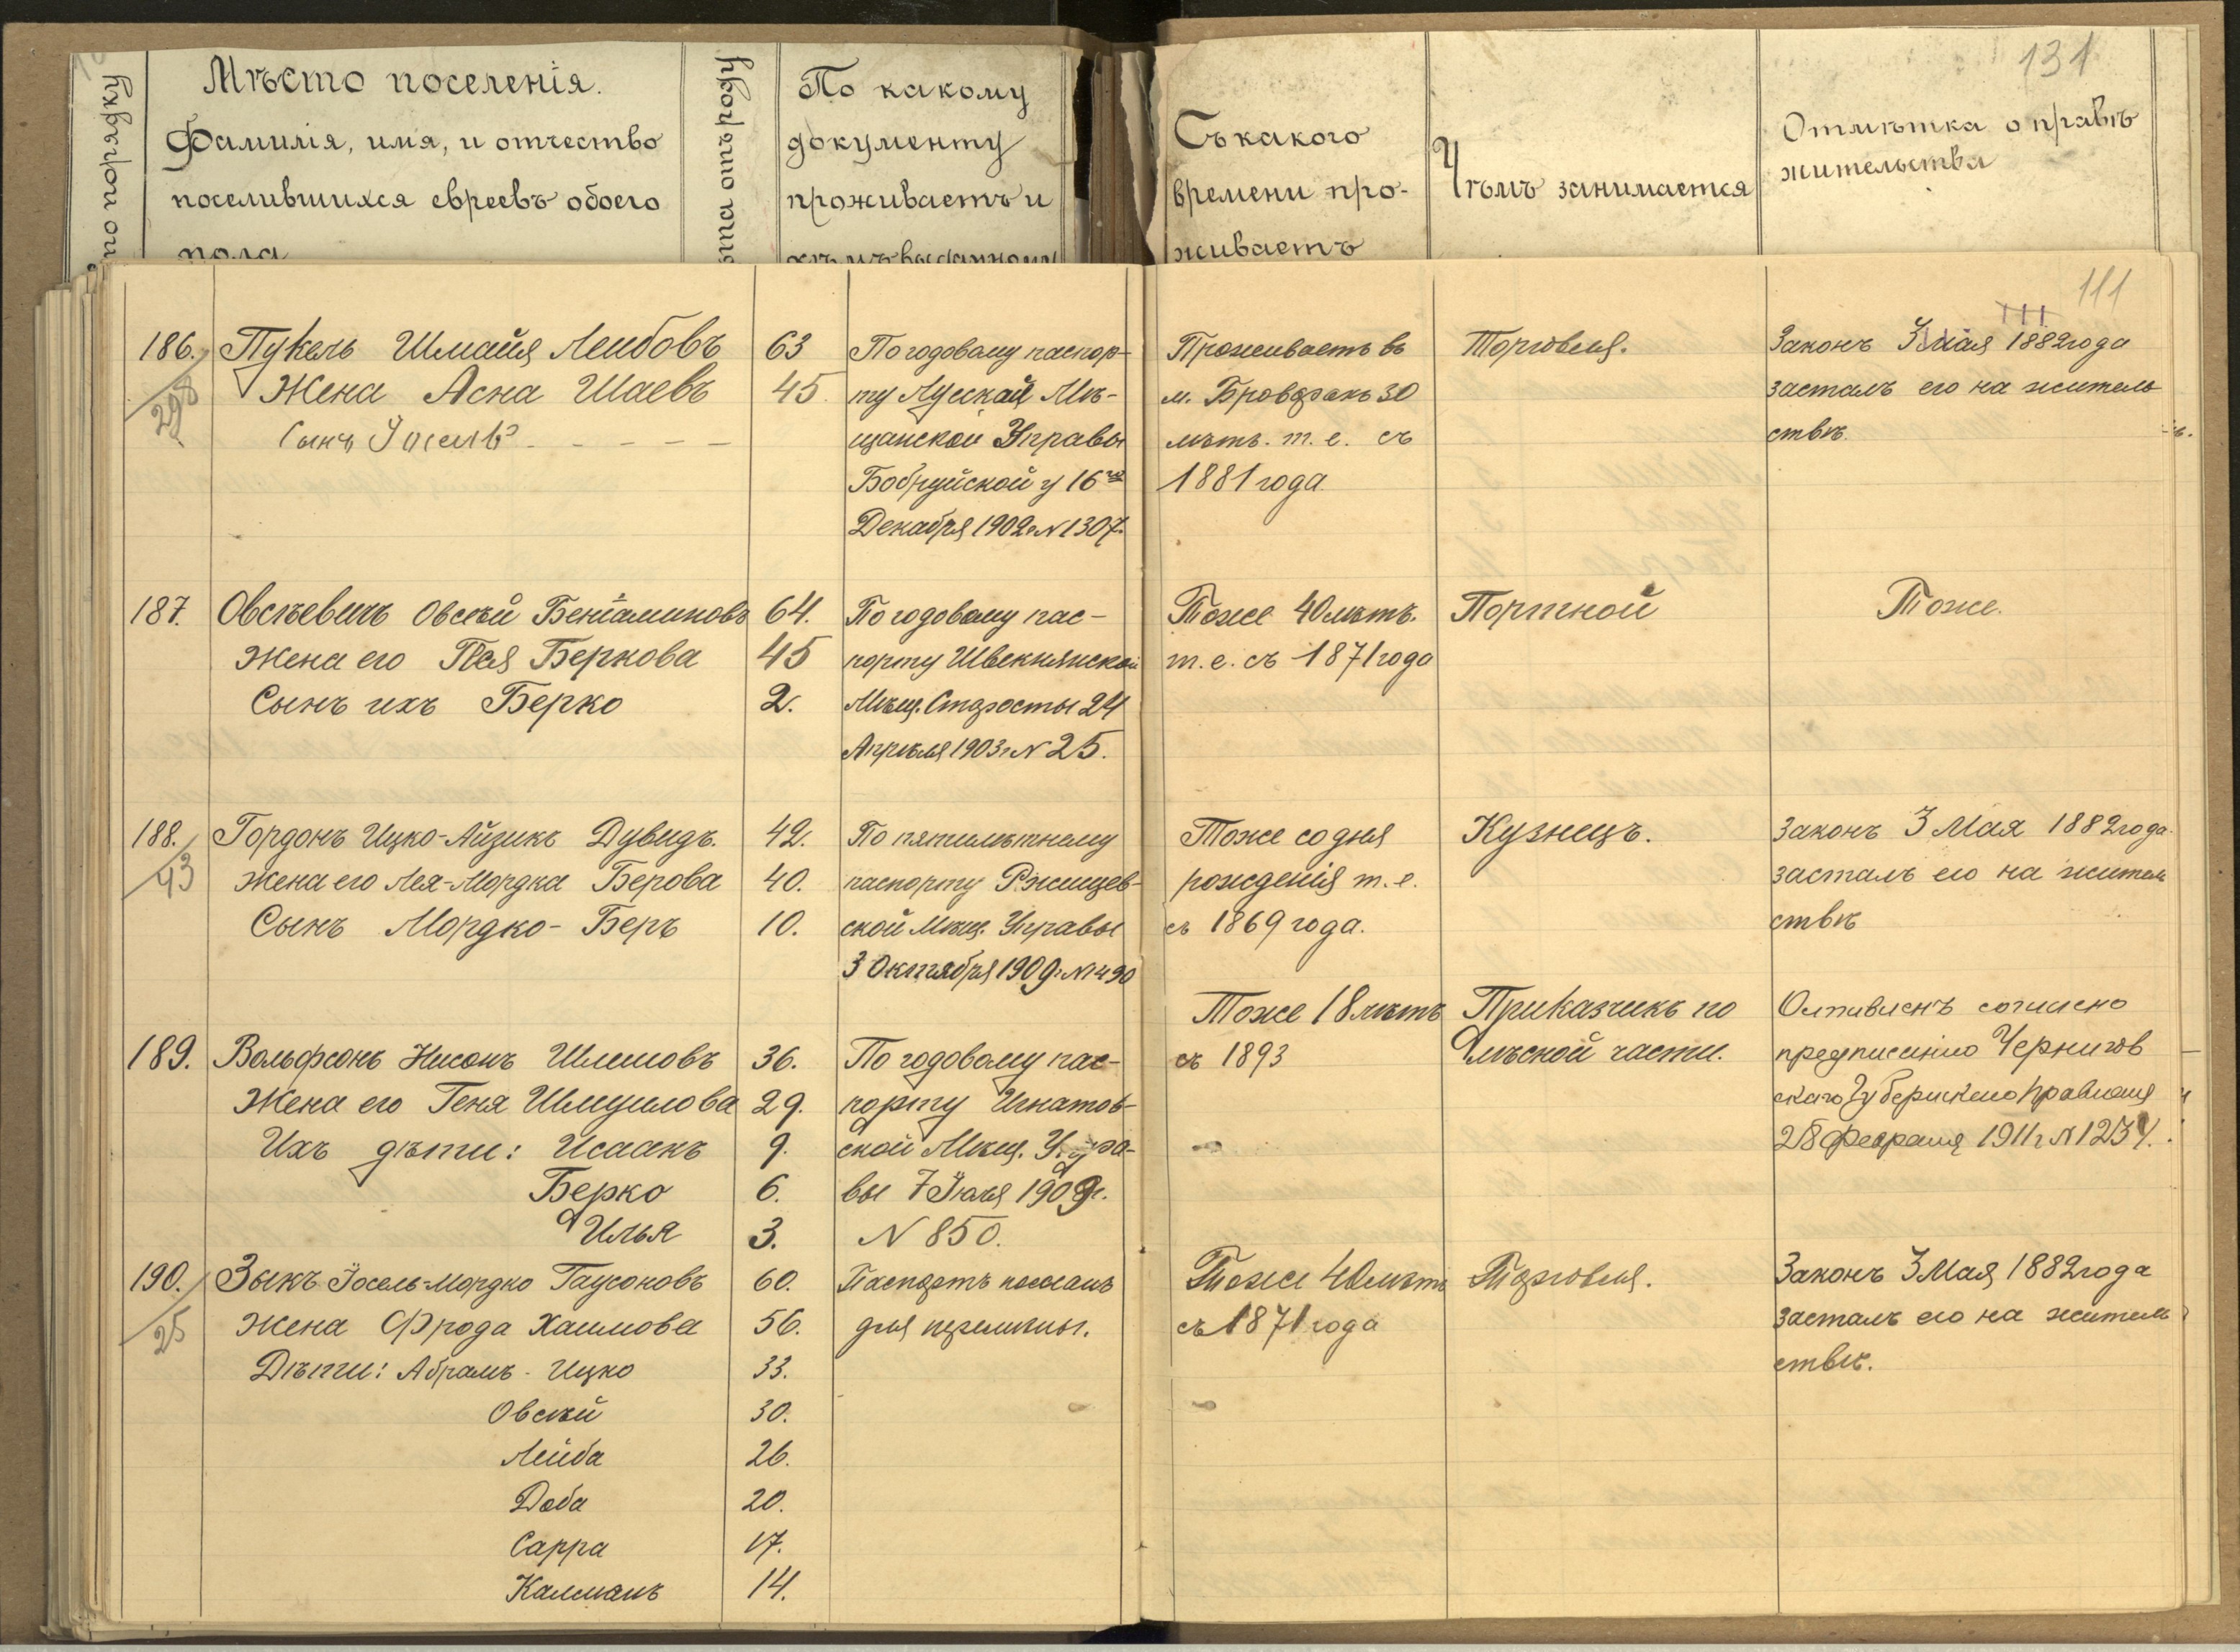 131
по порядку
Мѣсто поселенія.
Фамилія, имя, и отчество
поселившихся евреевъ обоего
пола
отъ роду
По какому
документу
проживаетъ и
Съ какого
времени про-
живаетъ
Чѣмъ занимается
Отмѣтка о правѣ
жительства
111
111
186. Пукель Шмайя Лейбовъ 63
298
Жена Асна Шаевъ 45
Сынъ Іосель
По годовому паспор-
ту Луской Мѣ-
щанской Управы
Бобруйской у 16го
Декабря 1902 г N 1307.
Проживаетъ въ
м. Броварахъ 30
лѣтъ. т. е. съ
1881 года
Торговля.
Законъ 3 Мая 1882 года
засталъ его на житель
ствѣ.
187. Овсѣевичъ Овсѣй Беніаминовъ 64.
Жена его Пея Беркова 45
Сынъ ихъ Берко 2.
По годовому пас-
порту Швекнянской
Мѣщ. Старосты 24
Апрѣля 1903 г N 25.
Тоже 40 лѣтъ.
т. е. съ 1871 года
Портной
Тоже.
188. Гордонъ Ицко-Айзикъ Дувидъ. 42.
43
Жена его Лея-Мордка Берова 40.
Сынъ Мордко-Беръ 10.
По пятилѣтнему
паспорту Ржищев-
ской Мѣщ. Управы
3 Октября 1909 г. N 1490
Тоже со дня
рожденія т. е.
съ 1869 года.
Кузнецъ.
Законъ 3 Мая 1882 года.
засталъ его на житель
ствѣ
189. Вольфсонъ Нисонъ Шлемовъ 36.
Жена его Геня Шмуилова 29.
Ихъ дѣти: Исаакъ 9.
Берко 6.
Илья 3.
По годовому пас-
порту Игнатов-
ской Мѣщ. Упра-
вы 7 Іюля 1909 г.
N 850.
Тоже 18 лѣтъ
съ 1893
Приказчикъ по
лѣсной части.
Оставленъ согласно
предписанію Чернигов
скаго Губернскаго Правленія
28 Февраля 1911 г N 1254.
190. Зыкъ Іосель-Мордко Гаусоновъ 60.
25
Жена Фрода Хаимова 56.
Дѣти: Абрамъ-Ицко 33.
Овсѣй 30.
Лейба 26.
Доба 20.
Сарра 17.
Калманъ 14.
Паспортъ посланъ
для перемѣны.
Тоже 40 лѣтъ
съ 1871 года
Торговля.
Законъ 3 Мая 1882 года
засталъ его на житель
ствѣ.